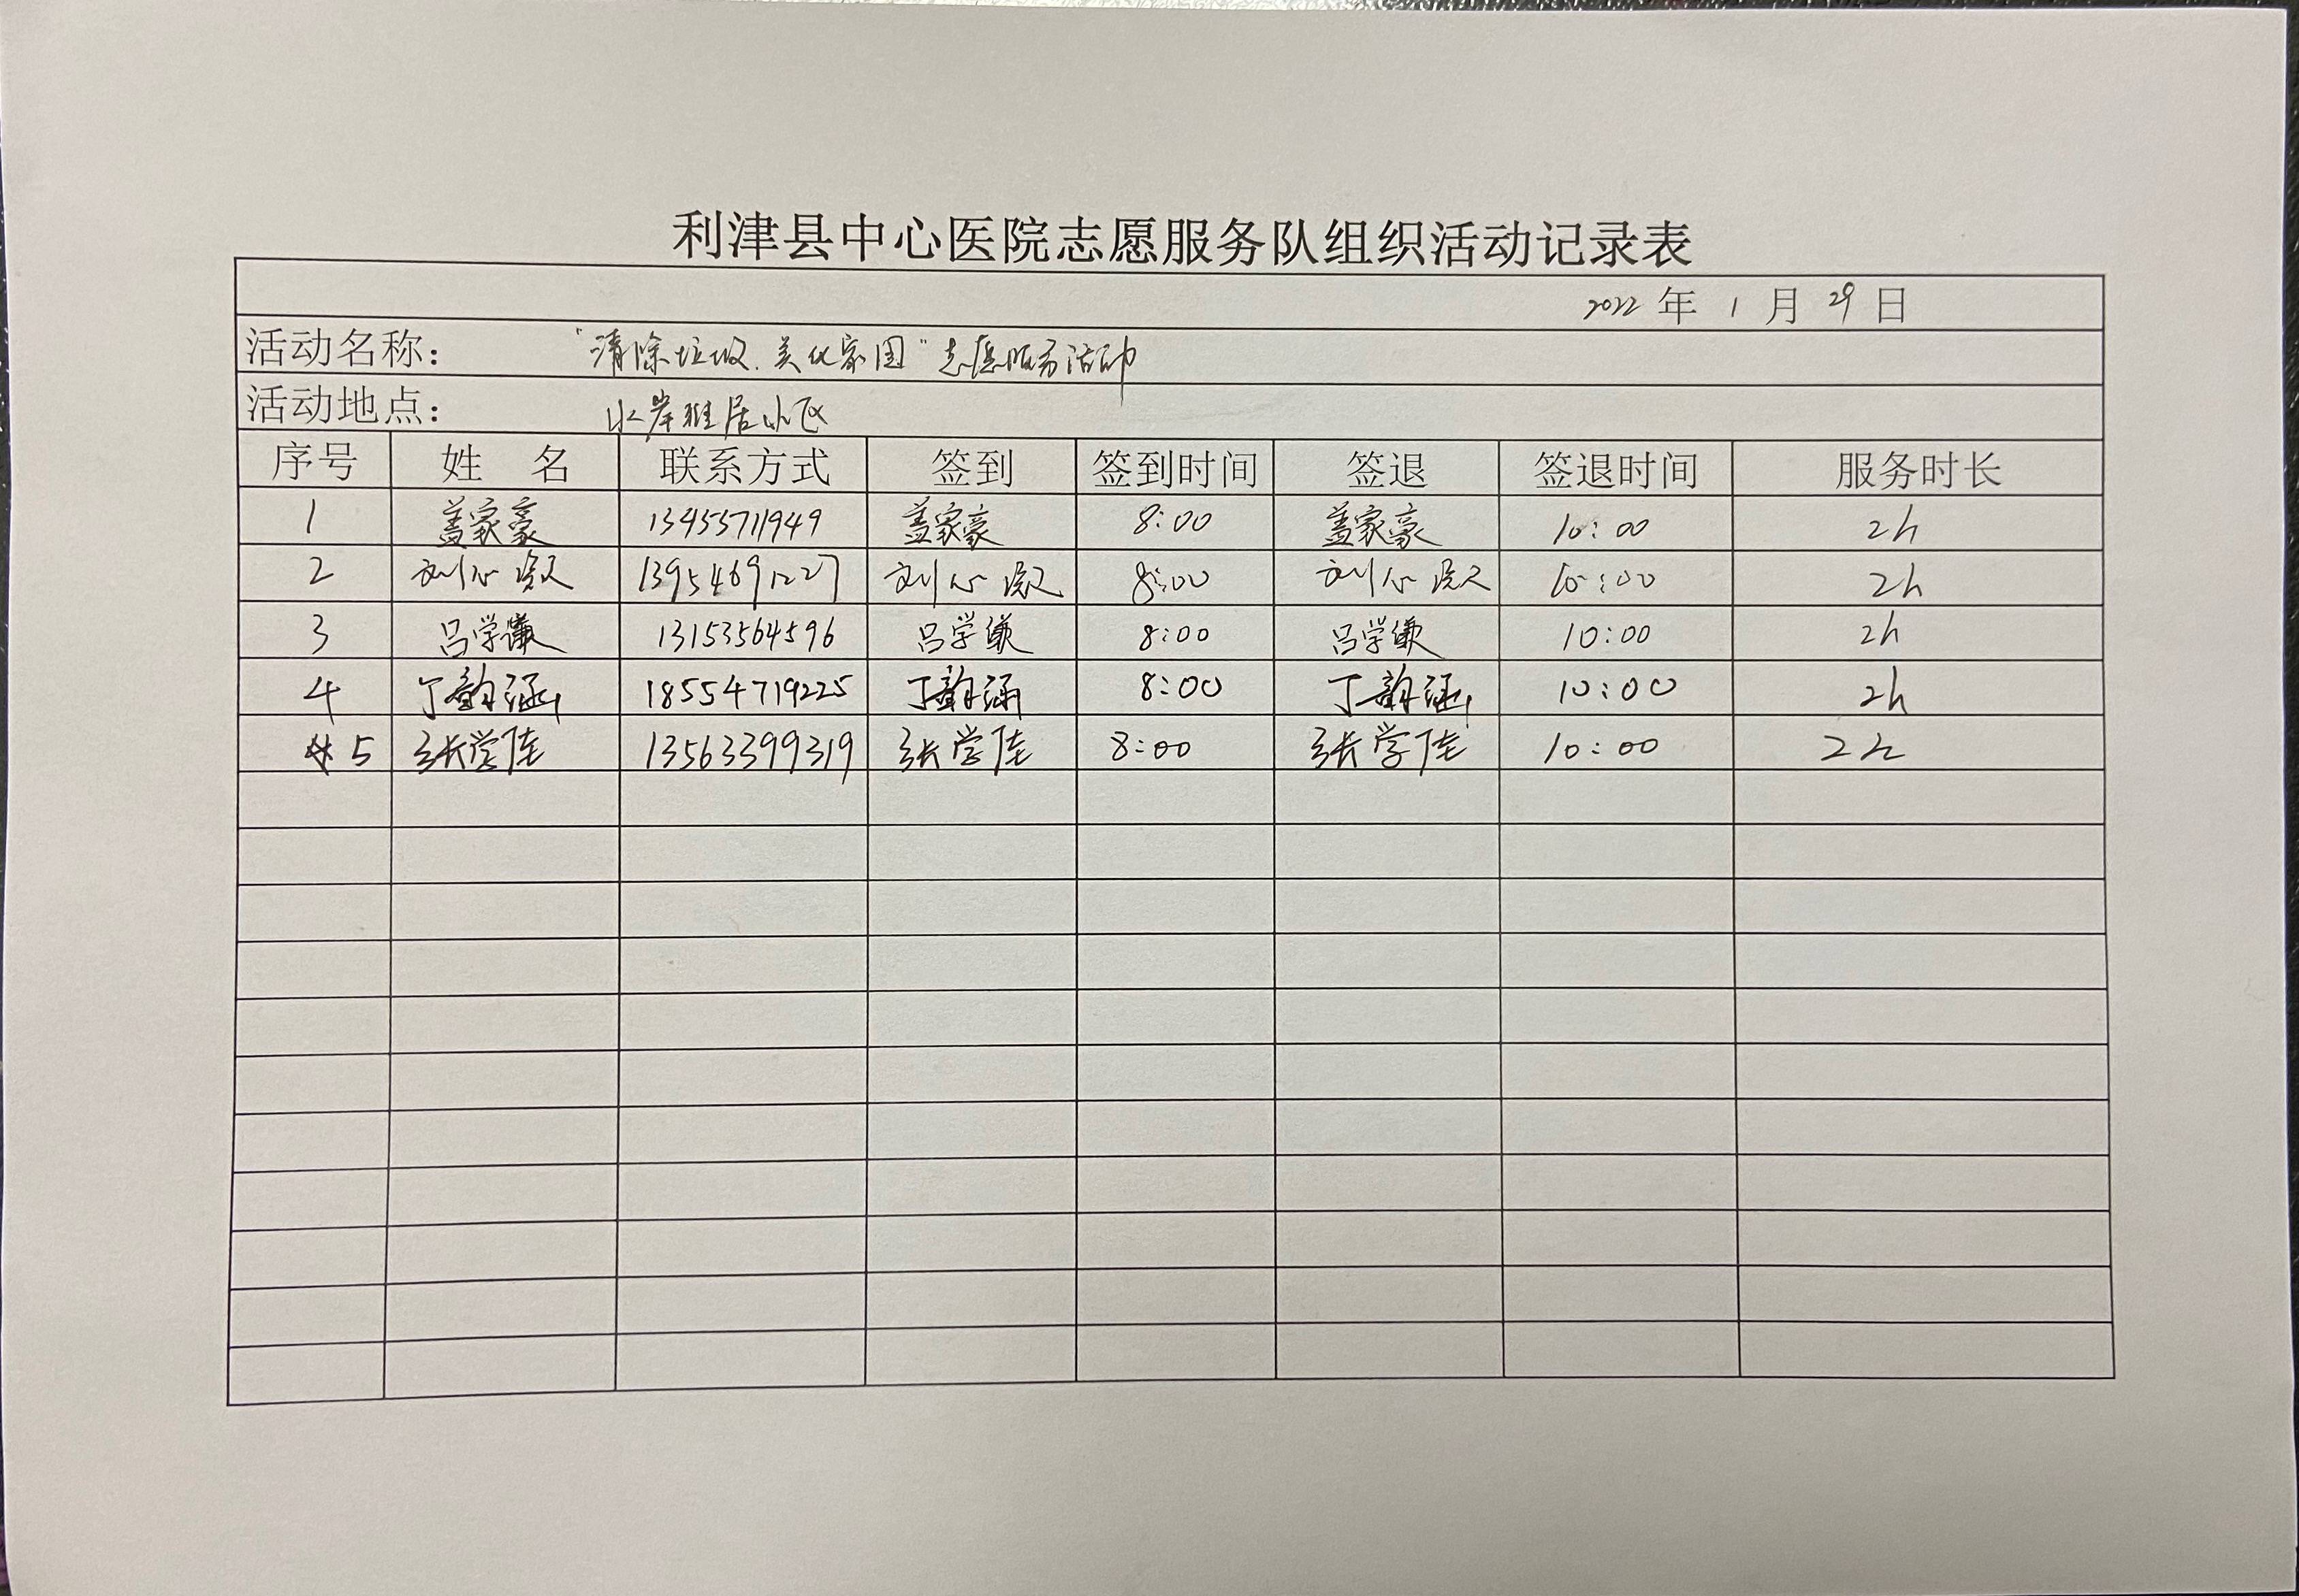 利津县中心医院志愿服务队组织活动记录表
2022 年 1 月 29 日
活动名称： "清除垃圾.美化家园"志愿服务活动
活动地点： 水岸雅居小区
序号 姓 名 联系方式 签到 签到时间 签退 签退时间 服务时长
1 盖家豪 13455711949 盖家豪 8:00 盖家豪 10:00 2h
2 刘心 13954691227 刘心 8:00 刘心 10:00 2h
3 吕学谦 13153564596 吕学谦 8:00 吕学谦 10:00 2h
4 丁韵涵 18554719225 丁韵涵 8:00 丁韵涵 10:00 2h
5 张学陆 13563399319 张学陆 8:00 张学陆 10:00 2h